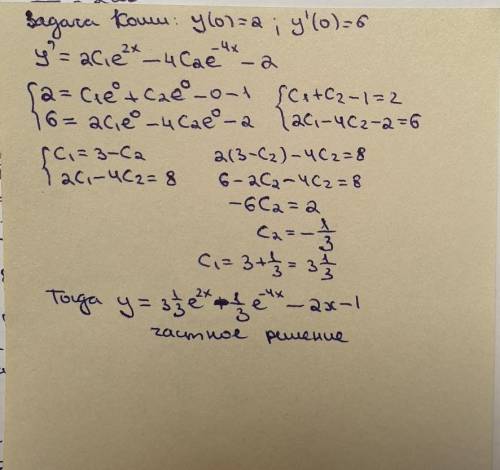 Задача Коши: y(0)=2 ; y'(0)=6
y' = 2C₁e²ˣ − 4C₂e⁻⁴ˣ − 2
{ 2 = C₁e⁰ + C₂e⁰ − 0 − 1 { C₁ + C₂ − 1 = 2
6 = 2C₁e⁰ − 4C₂e⁰ − 2 2C₁ − 4C₂ − 2 = 6
{ C₁ = 3 − C₂ 2(3 − C₂) − 4C₂ = 8
2C₁ − 4C₂ = 8 6 − 2C₂ − 4C₂ = 8
−6C₂ = 2
C₂ = −1/3
C₁ = 3 + 1/3 = 3 1/3
Тогда y = 3 1/3 e²ˣ − 1/3 e⁻⁴ˣ − 2x − 1
частное решение